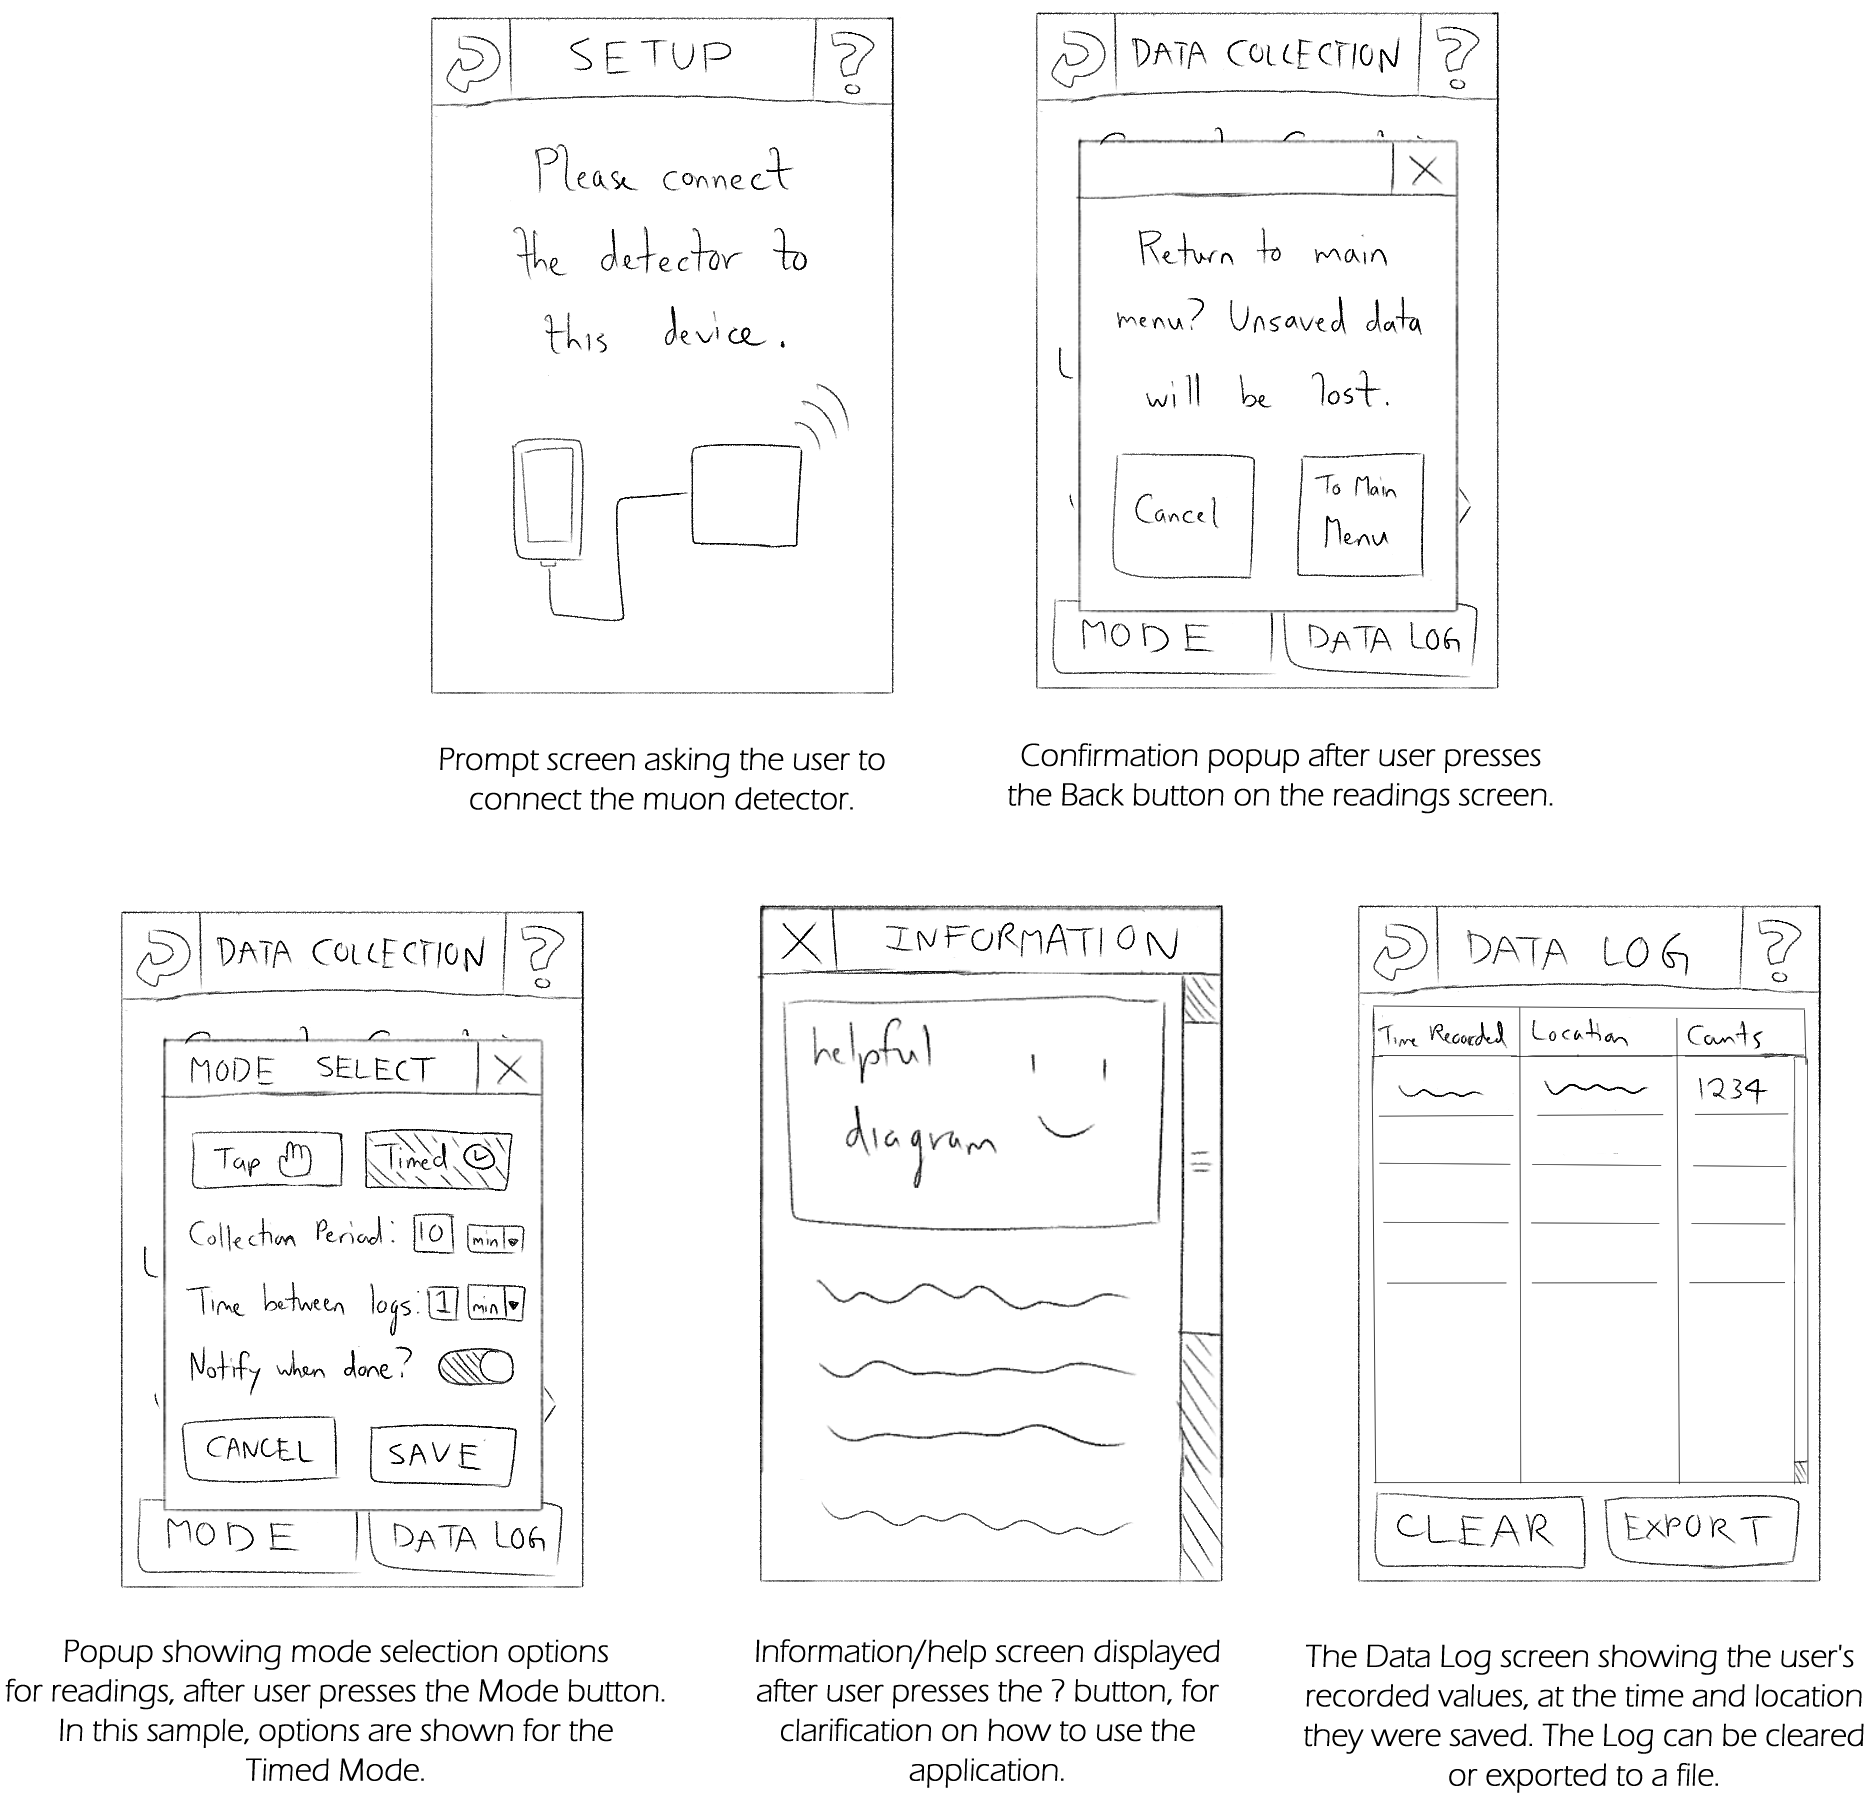 SETUP
?
Please connect
the detector to
this device.
Prompt screen asking the user to
connect the muon detector.
DATA COLLECTION
?
X
Return to main
menu? Unsaved data
will be lost.
Cancel
To Main
Menu
MODE
DATA LOG
Confirmation popup after user presses
the Back button on the readings screen.
DATA COLLECTION
?
MODE SELECT X
Tap
Timed
Collection Period: 10 min
Time between logs: 1 min
Notify when done?
CANCEL
SAVE
MODE
DATA LOG
Popup showing mode selection options
for readings, after user presses the Mode button.
In this sample, options are shown for the
Timed Mode.
X INFORMATION
helpful
diagram
Information/help screen displayed
after user presses the ? button, for
clarification on how to use the
application.
DATA LOG
?
Time Recorded Location Counts
1234
CLEAR
EXPORT
The Data Log screen showing the user's
recorded values, at the time and location
they were saved. The Log can be cleared
or exported to a file.